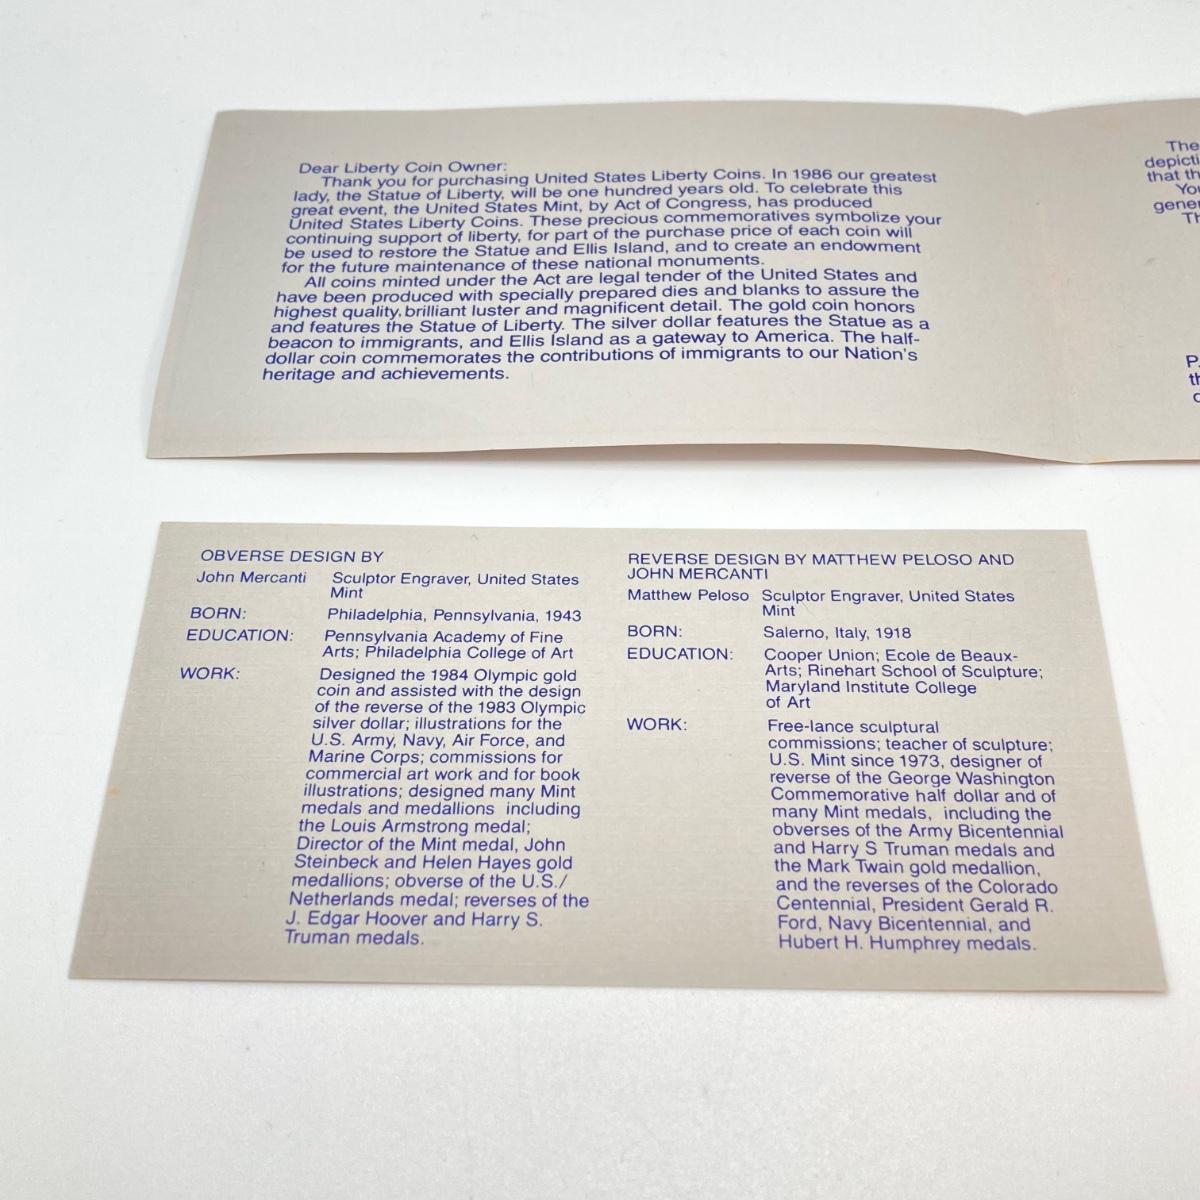 Dear Liberty Coin Owner:
Thank you for purchasing United States Liberty Coins. In 1986 our greatest
lady, the Statue of Liberty, will be one hundred years old. To celebrate this
great event, the United States Mint, by Act of Congress, has produced
United States Liberty Coins. These precious commemoratives symbolize your
continuing support of liberty, for part of the purchase price of each coin will
be used to restore the Statue and Ellis Island, and to create an endowment
for the future maintenance of these national monuments.
All coins minted under the Act are legal tender of the United States and
have been produced with specially prepared dies and blanks to assure the
highest quality, brilliant luster and magnificent detail. The gold coin honors
and features the Statue of Liberty. The silver dollar features the Statue as a
beacon to immigrants, and Ellis Island as a gateway to America. The half-
dollar coin commemorates the contributions of immigrants to our Nation's
heritage and achievements.
The
depicti
that th
You
gener
Th
P.
th
OBVERSE DESIGN BY
John Mercanti Sculptor Engraver, United States
Mint
BORN: Philadelphia, Pennsylvania, 1943
EDUCATION: Pennsylvania Academy of Fine
Arts; Philadelphia College of Art
WORK: Designed the 1984 Olympic gold
coin and assisted with the design
of the reverse of the 1983 Olympic
silver dollar; illustrations for the
U.S. Army, Navy, Air Force, and
Marine Corps; commissions for
commercial art work and for book
illustrations; designed many Mint
medals and medallions including
the Louis Armstrong medal;
Director of the Mint medal, John
Steinbeck and Helen Hayes gold
medallions; obverse of the U.S./
Netherlands medal; reverses of the
J. Edgar Hoover and Harry S.
Truman medals.
REVERSE DESIGN BY MATTHEW PELOSO AND
JOHN MERCANTI
Matthew Peloso Sculptor Engraver, United States
Mint
BORN: Salerno, Italy, 1918
EDUCATION: Cooper Union; Ecole de Beaux-
Arts; Rinehart School of Sculpture;
Maryland Institute College
of Art
WORK: Free-lance sculptural
commissions; teacher of sculpture;
U.S. Mint since 1973, designer of
reverse of the George Washington
Commemorative half dollar and of
many Mint medals, including the
obverses of the Army Bicentennial
and Harry S Truman medals and
the Mark Twain gold medallion,
and the reverses of the Colorado
Centennial, President Gerald R.
Ford, Navy Bicentennial, and
Hubert H. Humphrey medals.